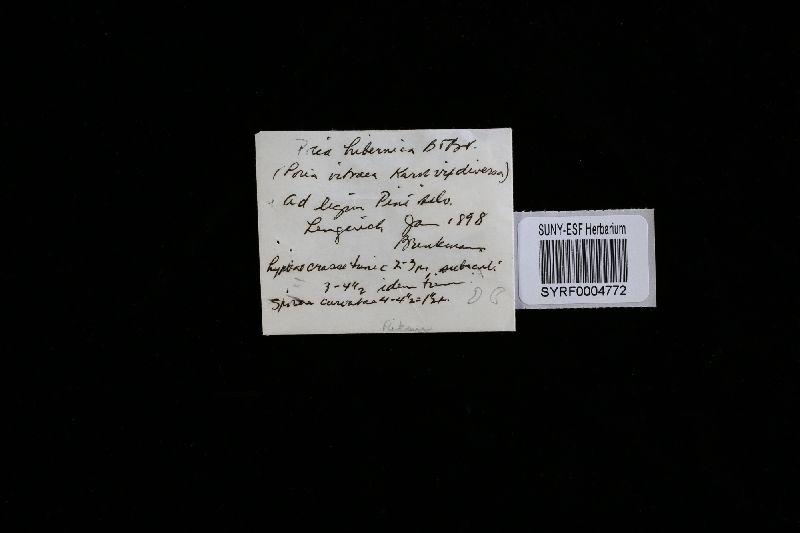 Poria hibernica B & Br.
(Poria vitraea Karst vix diversa)
Ad lignum Pini silv.
Lengerich Jan 1898
Brinkmann
hyphae crasse tunic 2-3µ, subiculi
3-4½ idem
Sporae curvatae 4-4½=1½µ.
SUNY-ESF Herbarium
SYRF0004772